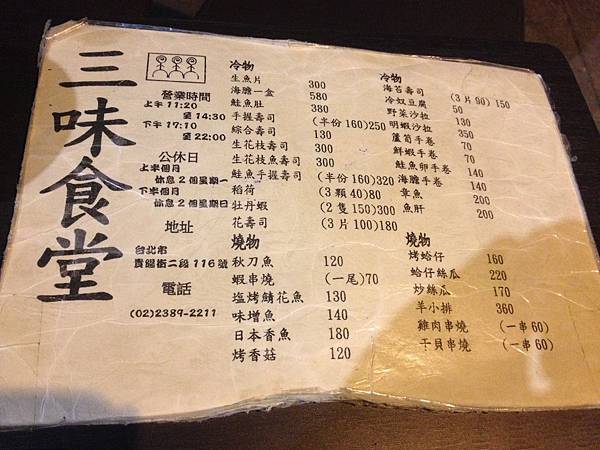 三味食堂
營業時間
上午11:20
至14:30
下午17:10
至22:00
公休日
上半個月
休息2個星期一
下半個月
休息2個星期日
地址
台北市
貴陽街二段116號
電話
(02)2389-2211
冷物
生魚片 300
海膽一盒 580
鮭魚肚 380
手握壽司 (半份160)250
綜合壽司 130
生花枝壽司 300
生花枝魚壽司 380
鮭魚手握壽司 (半份160)320
稻荷 (3顆40)80
牡丹蝦 (2隻150)300
花壽司 (3片100)180
燒物
秋刀魚 120
蝦串燒 (一尾)70
塩烤鯖花魚 130
味增魚 140
日本香魚 180
烤香菇 120
冷物
海苔壽司 (3片90)150
冷奴豆腐 50
野菜沙拉 130
明蝦沙拉 350
蘆筍手卷 70
鮮蝦手卷 70
鮭魚卵手卷 140
海膽手卷 140
章魚 200
魚肝 200
燒物
烤蛤仔 160
蛤仔絲瓜 220
炒絲瓜 170
羊小排 360
雞肉串燒 (一串60)
干貝串燒 (一串60)